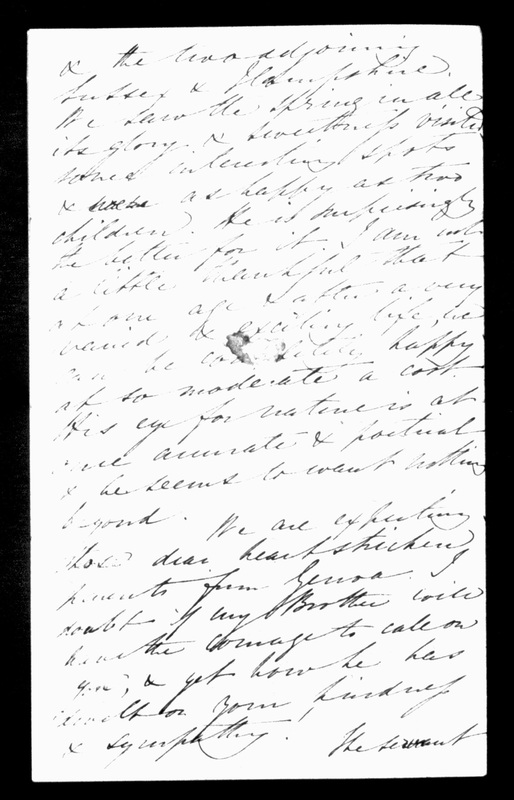 & the two adjoining
Sussex & Hampshire.
We saw the spring in all
its glory & sweetness visited
some interesting spots
& were as happy as two
children. He is surprisingly
the better for it. I am not
a little thankful that
at our age & after a very
varied & exciting life, we
can be completely happy
at so moderate a cost.
His eye for nature is at
once accurate & poetical
& he seems to want nothing
beyond. We are expecting
those dear heartstricken
parents from Genoa. I
doubt if my Brother will
have the courage to call on
you, & yet how he has
dwelt on your kindness
& sympathy. The servant